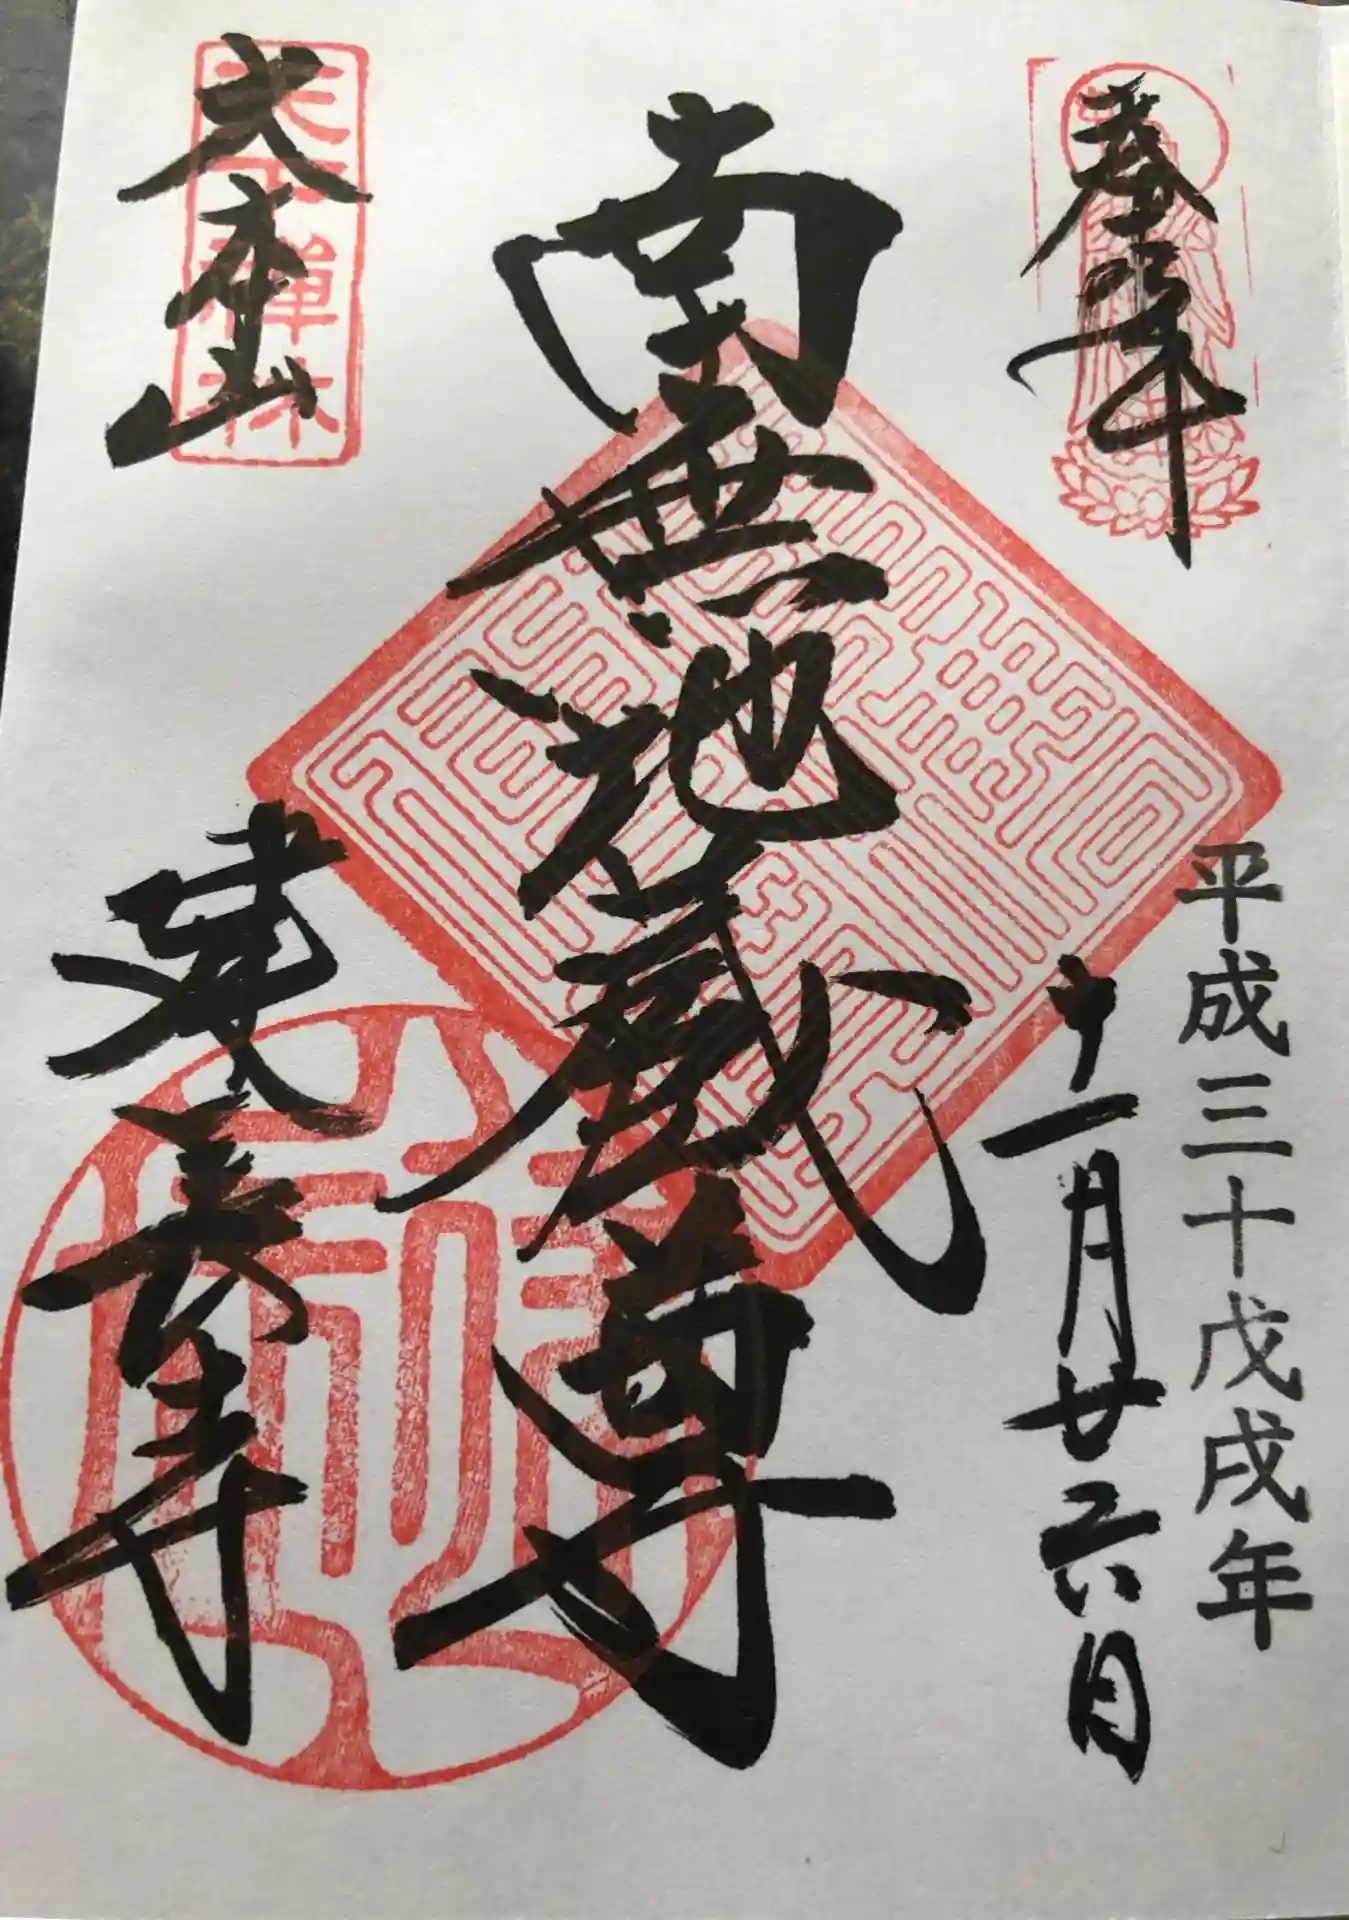 奉拝
平成三十戊戌年
十一月廿六日
南無地蔵尊
大本山
建長寺
天下禅林